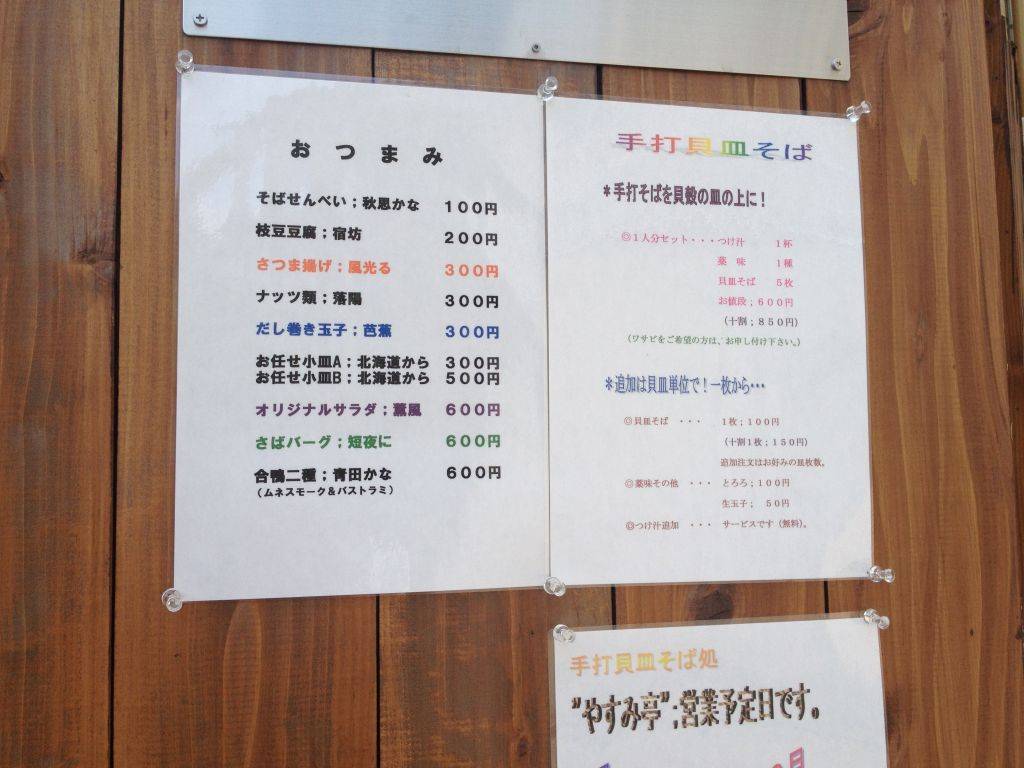 おつまみ
そばせんべい；秋思かな　１００円
枝豆豆腐；宿坊　２００円
さつま揚げ；風光る　３００円
ナッツ類；落陽　３００円
だし巻き玉子；芭蕉　３００円
お任せ小皿Ａ；北海道から　３００円
お任せ小皿Ｂ；北海道から　５００円
オリジナルサラダ；薫風　６００円
さばバーグ；短夜に　６００円
合鴨二種；青田かな　６００円
（ムネスモーク＆パストラミ）
手打貝皿そば
＊手打そばを貝殻の皿の上に！
◎１人分セット・・・つけ汁　１杯
薬　味　１種
貝皿そば　５枚
お値段；６００円
（十割；８５０円）
（ワサビをご希望の方は、お申し付け下さい。）
＊追加は貝皿単位で！一枚から・・・
◎貝皿そば　・・・　１枚；１００円
（十割１枚；１５０円）
追加注文はお好みの皿枚数。
◎薬味その他　・・・　とろろ；１００円
生玉子；　５０円
◎つけ汁追加　・・・　サービスです（無料）。
手打貝皿そば処
”やすみ亭”；営業予定日です。